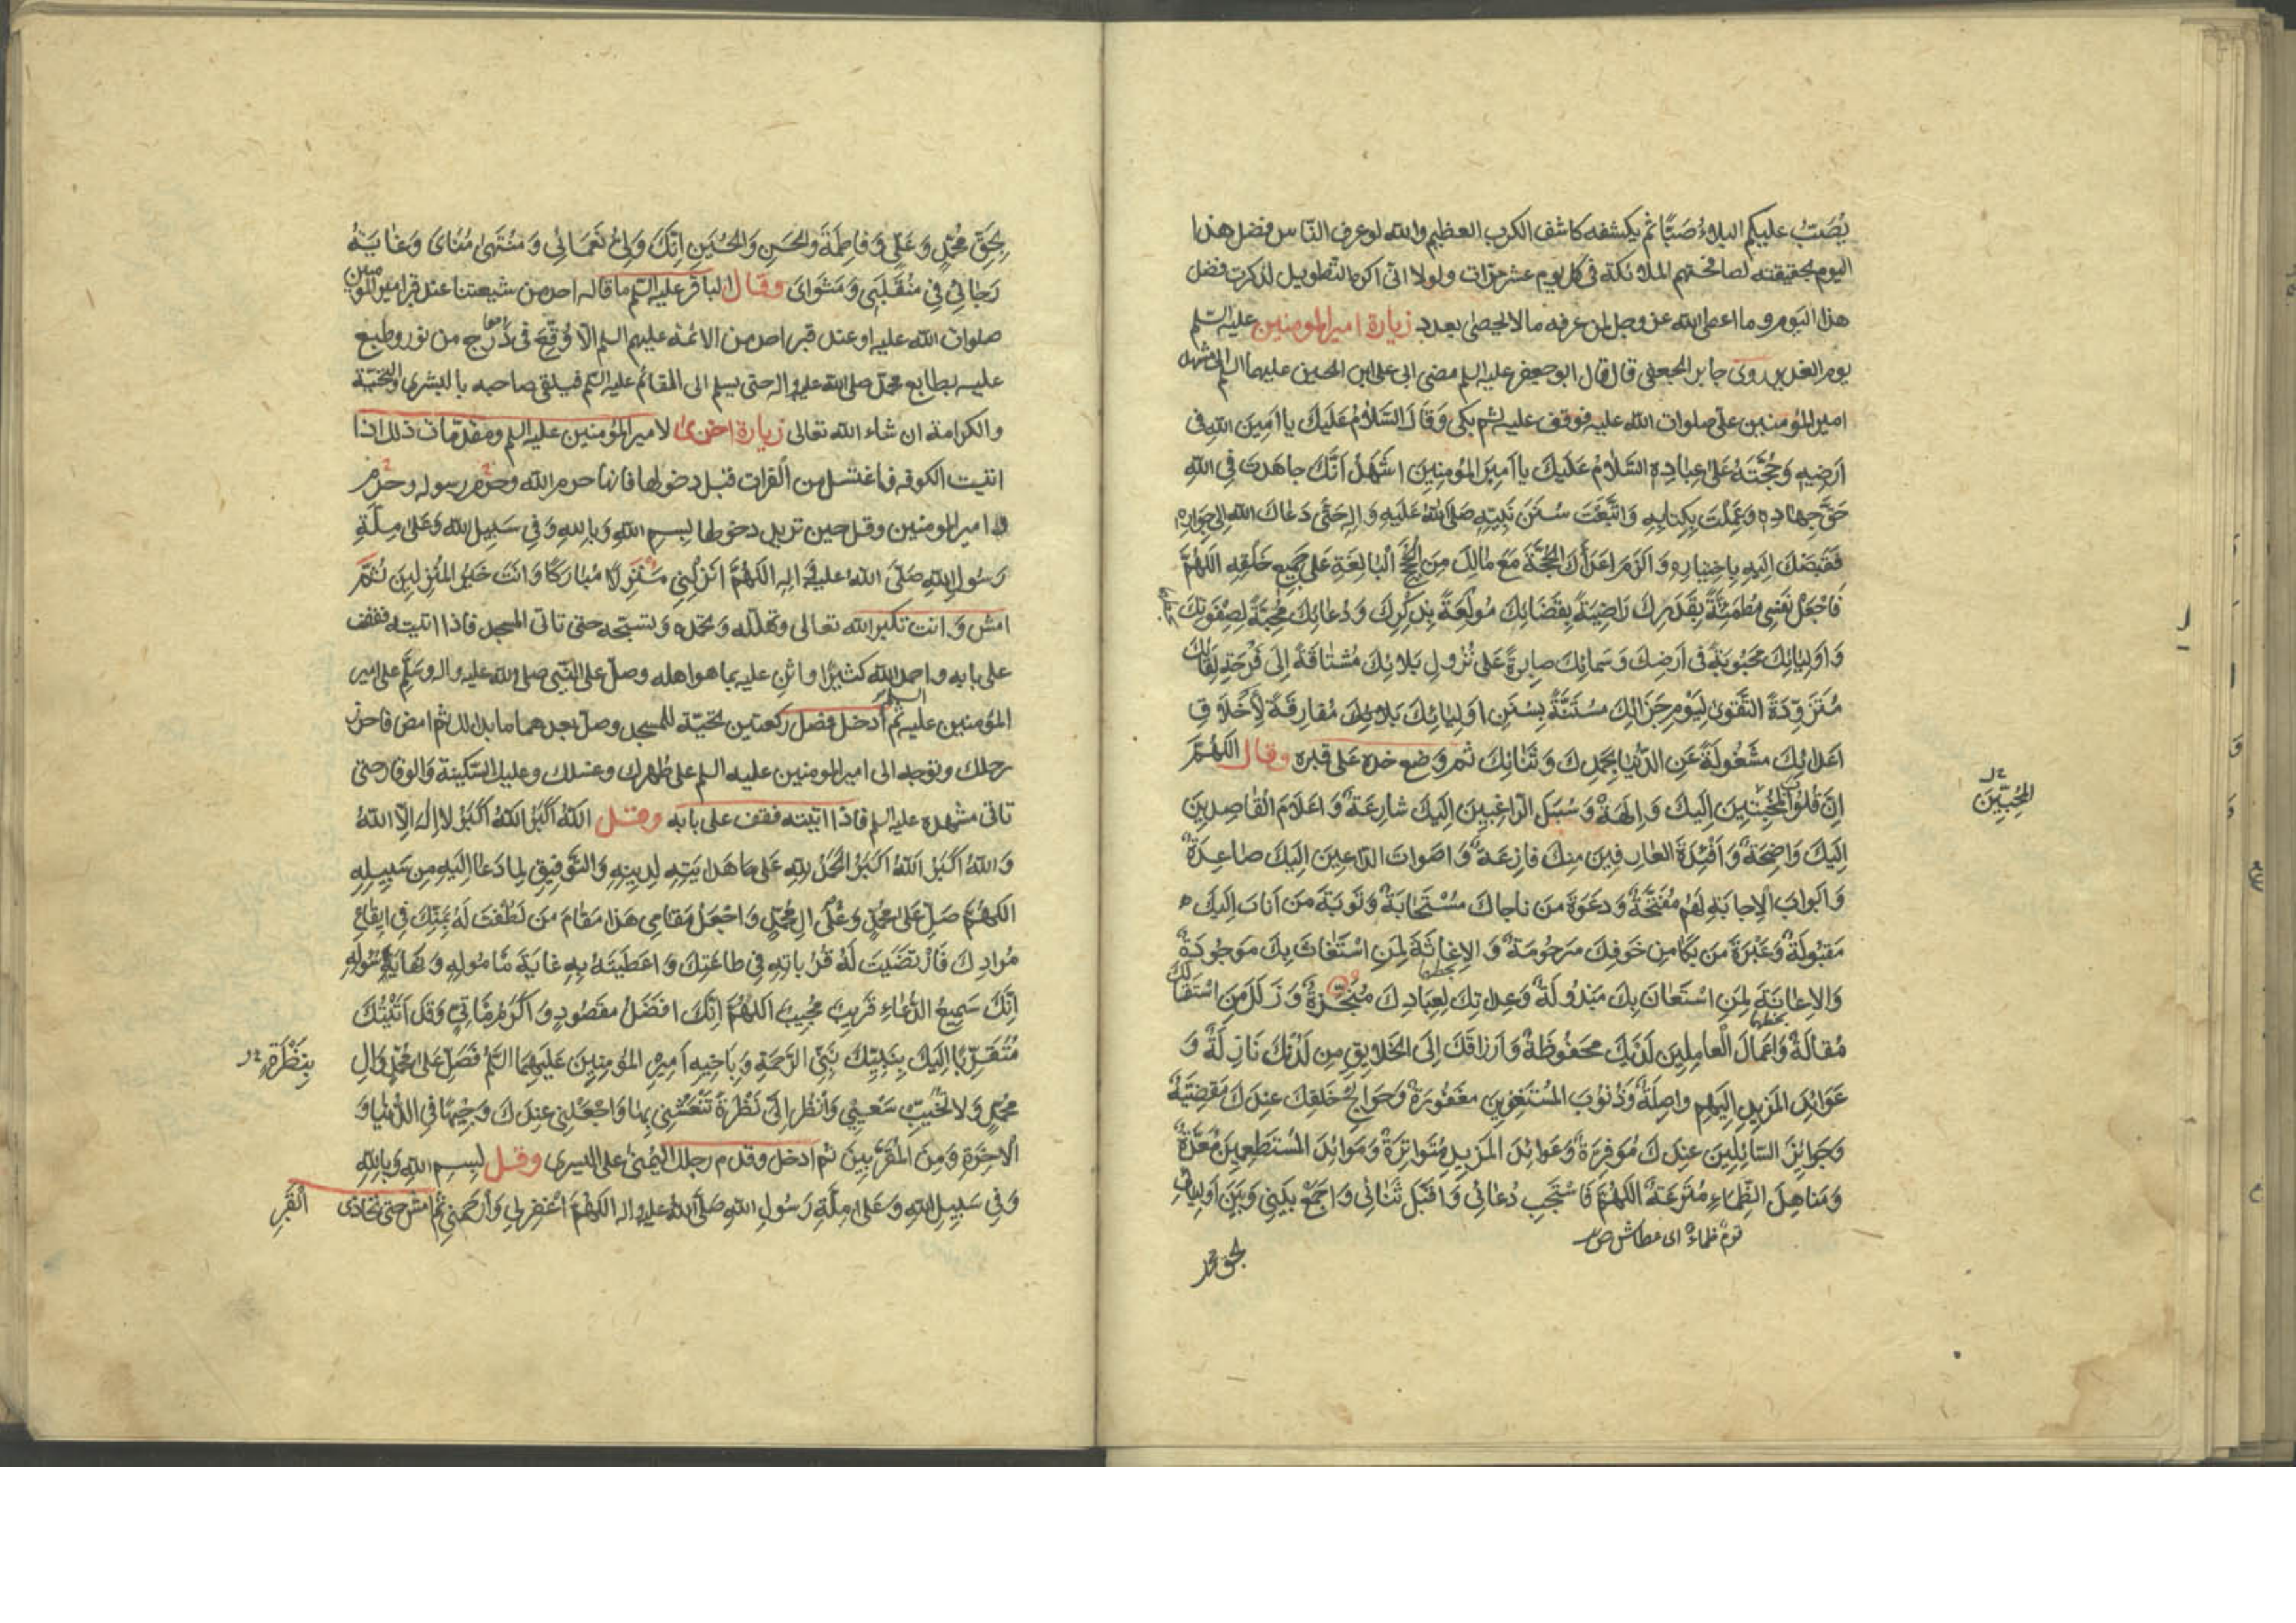 يُصَبُّ عليكم البلاءُ صَبًّا ثم يكشفه كاشف الكرب العظيم والله لو عرف النّاس فضل هذا
اليوم بحقيقته لصافحتهم الملائكة فى كل يوم عشر مرّات ولولا انّى اكره التّطويل لذكرت فضل
هذا اليوم وما اعطى الله عز وجل لمن عرفه ما لا يحصى بعدد زيارة امير المومنين عليه السّلم
يوم الغدير روى جابر الجعفى قال قال ابو جعفر عليه السلم مضى ابى على ابن الحسين عليهما السلم الى مشهد
امير المؤمنين علىّ صلوات الله عليه فوقف عليه ثم بكى وَقَالَ السَّلَامُ عَلَيْكَ يا اَمِينَ اللّهِ فى
اَرْضِهِ وَحُجَّتَهُ عَلىٰ عِبٰادِهِ السَّلَامُ عَلَيْكَ يا اَمِيرَ المُومِنِينَ اَشْهَدُ اَنَّكَ جاهَدْتَ فِى اللّهِ
حَقَّ جِهادِهِ وَعَمِلْتَ بِكِتابِهِ وَاتَّبَعْتَ سُنَنَ نَبِيِّهِ صَلَّى اللّهُ عَلَيْهِ وَالِهِ حَتّٰى دَعٰاكَ اللّهُ اِلىٰ جِوارِهِ
فَقَبَضَكَ اِلَيْهِ بِاخْتِيارِهِ وَاَلْزَمَ اَعْدٰآءَكَ الحُجَّةَ مَعَ مٰالَكَ مِنَ الحُجَجِ الْبٰالِغَةِ عَلىٰ جَمِيعِ خَلْقِهِ اَللّهُمَّ
فَاجْعَلْ نَفْسِى مُطْمَئِنَّةً بِقَدَرِكَ رٰاضِيَةً بِقَضٰائِكَ مُولَعَةً بِذِكْرِكَ وَدُعٰائِكَ مُحِبَّةً لِصَفْوَةِ
وَاَوْلِيٰائِكَ مَحْبُوبَةً فى اَرْضِكَ وَسَمائِكَ صابِرَةً عَلىٰ نُزُولِ بَلائِكَ مُشْتٰاقَةً اِلىٰ فَرْحَةِ لِقٰائِكَ
مُتَزَوِّدَةً التَّقْوىٰ لِيَوْمِ جَزٰائِكَ مُسْتَنَّةً بِسُنَنِ اَوْلِيٰائِكَ مُفارِقَةً لِأَخْلاقِ
اَعْدائِكَ مَشْغُولَةً عَنِ الدُّنْيا بِحَمْدِكَ وَثَنٰائِكَ ثم وَضع خده عَلى قبره وقال اللّهُمَّ
اِنَّ قُلُوبَ المُخْبِتِينَ اِلَيْكَ وٰالِهَةٌ وَسُبُلَ الرّٰاغِبِينَ اِلَيْكَ شٰارِعَةٌ وَاَعْلامَ القٰاصِدِينَ
المُحِبِّينَ
اِلَيْكَ وَاضِحَةٌ وَاَفْئِدَةَ العارِفِينَ مِنْكَ فازِعَةٌ وَاَصْواتَ الدّاعِينَ اِلَيْكَ صٰاعِدَةٌ
وَاَبْوابَ الْاِجابَةِ لَهُمْ مُفَتَّحَةٌ وَدَعْوَةَ مَنْ ناجٰاكَ مُسْتَجٰابَةٌ وَتَوْبَةَ مَنْ اَنابَ اِلَيْكَ
مَقْبُولَةٌ وَعَبْرَةَ مَنْ بَكىٰ مِنْ خَوْفِكَ مَرْحُومَةٌ وَالاِغاثَةَ لِمَنِ اسْتَغٰاثَ بِكَ مَوْجُودَةٌ
وَالاِعٰانَةَ لِمَنِ اسْتَعٰانَ بِكَ مَبْذُولَةٌ وَعِداتِكَ لِعِبٰادِكَ مُنْجَزَةٌ وَزَلَلَ مَنِ اسْتَقٰالَكَ
مُقٰالَةٌ وَاَعْمٰالَ الْعٰامِلِينَ لَدَيْكَ مَحْفُوظَةٌ وَاَرْزاقَكَ اِلَى الخَلٰايِقِ مِنْ لَدُنْكَ نٰازِلَةٌ وَ
عَوٰائِدَ المَزِيدِ اِلَيْهِمْ واصِلَةٌ وَذُنُوبَ المُسْتَغْفِرِينَ مَغْفُورَةٌ وَحَوٰائِجَ خَلْقِكَ عِنْدَكَ مَقْضِيَّةٌ
وَجَوٰائِزَ السّائِلِينَ عِنْدَكَ مُوَفَّرَةٌ وَعَوٰائِدَ المَزِيدِ مُتَواتِرَةٌ وَمَوٰائِدَ المُسْتَطْعِمِينَ مُعَدَّةٌ
وَمَناهِلَ الظِّمٰاءِ مُتْرَعَةٌ اَللّهُمَّ فَاسْتَجِبْ دُعٰائِى وَاقْبَلْ ثَنٰائِى وَاجْمَعْ بَيْنِى وَبَيْنَ اَوْلِيائِى
قومٌ ظماءٌ اى عطاش
بحق محمد
بِحَقِّ مُحَمَّدٍ وَعَلِىٍّ وَفاطِمَةَ وَالحَسَنِ وَالحُسَيْنِ اِنَّكَ وَلِىُّ نَعْمٰائِى وَمُنْتَهىٰ مُنٰاىَ وَغٰايَةُ
رَجٰائِى فِى مُنْقَلَبِى وَمَثْوٰاىَ وقال الباقر عليه السّلم ما قاله احد من شيعتنا عند قبر امير المومنين
صلوات الله عليه او عند قبر احد من الائمة عليهم السلم الّا وُقّع فى دَرج من نور وطبع
عليه بطابع محمد صلى الله عليه واله حتى يسلم الى القائم عليه السّلم فيلقى صاحبه بالبشرى والتحيّة
والكرامة ان شاء الله تعالى زيارة اخرىٰ لامير المؤمنين عليه السلم ومقدّمات ذلك اذا
اتيت الكوفه فاغتسل من الفرات قبل دخولها فانها حرم الله وحرم رسوله وحرم
امير المومنين وقل حين تريد دخولها بِسمِ اللّهِ وَبِاللهِ وَفِى سَبِيلِ اللّهِ وَعَلىٰ مِلَّةِ
رَسُولِ اللّهِ صَلَّى اللّهُ عليهِ وَالِهِ اَللّهُمَّ اَنْزِلْنِى مُنْزَلًا مُبٰارَكًا وَاَنْتَ خَيْرُ المُنْزِلِينَ ثُمَّ
امش وَانت تكبر الله تعالى وتهلله وتحمده وتسبحه حتى تاتى المسجد فاذا اتيته فقف
على بابه واحمد الله كثيرًا واثنِ عليه بما هو اهله وصلّ على النّبى صلى الله عليه واله وسَلِّم على امير
المؤمنين عليه السلم ثم اَدخل فصل ركعتين تحيّة للمسجد وصلّ بعدهما ما بدا لك ثم امض فاحرز
رحلك وتوجه الى امير المومنين عليه السلم على طهرك وغسلك وعليك السّكينة وَالوقار حتى
تاتى مشهده عليه السلم فاذا اتيته فقف على بابه وقل اللّهُ اَكْبَرُ اللّهُ اَكْبَرُ لا اِلٰهَ اِلَّا اللّهُ
وَاللّهُ اَكْبَرُ اَللّهُ اَكْبَرُ الحَمْدُ لِلّهِ عَلىٰ هِدٰايَتِهِ لِدِينِهِ وَالتَّوْفِيقِ لِمٰا دَعٰا اِلَيْهِ مِنْ سَبِيلِهِ
اَللّهُمَّ صَلِّ عَلىٰ مُحَمَّدٍ وَعَلىٰ الِ مُحَمَّدٍ وَاجْعَلْ مَقامِى هَذا مَقٰامَ مَنْ لَطُفْتَ لَهُ بِمَنِّكَ فِى اِيقٰاعِ
مُرٰادِكَ فَارْتَضَيْتَ لَهُ قُرُباتِهِ فِى طاعَتِكَ وَاَعْطَيْتَهُ بِهِ غٰايَةَ مَأمُولِهِ وَنِهٰايَةَ سُولِهِ
اِنَّكَ سَمِيعُ الدُّعٰاءِ قَرِيبٌ مُجِيبٌ اَللّهُمَّ اِنَّكَ اَفْضَلُ مَقْصُودٍ وَاَكْرَمُ مَأتِىٍّ وَقَدْ اَتَيْتُكَ
مُتَقَرِّبًا اِلَيْكَ بِنَبِيِّكَ نَبِىِّ الرَّحْمَةِ وَبِاَخِيهِ اَمِيرِ المُؤمِنِينَ عَلَيْهِمَا السَّلمُ فَصَلِّ عَلىٰ مُحَمَّدٍ وَالِ
بِنَظْرَةٍ
مُحَمَّدٍ وَلا تُخَيِّبْ سَعْيِى وَانْظُرْ اِلَىَّ نَظْرَةً تَنْعَشُنِى بِهٰا وَاجْعَلْنِى عِنْدَكَ وَجِيهًا فِى الدُّنْيٰا وَ
الآخِرَةِ وَمِنَ المُقَرَّبِينَ ثم ادخل وقدم رجلك اليُمنىٰ على اليسرى وقل بِسمِ اللّهِ وَبِاللّهِ
وَفِى سَبِيلِ اللّهِ وَعَلىٰ مِلَّةِ رَسُولِ اللّهِ صَلَّى اللهُ عليه واله اَللّهُمَّ اغْفِرْ لِى وَارْحَمْنِى ثم امش حتى تحاذى
القَبرَ